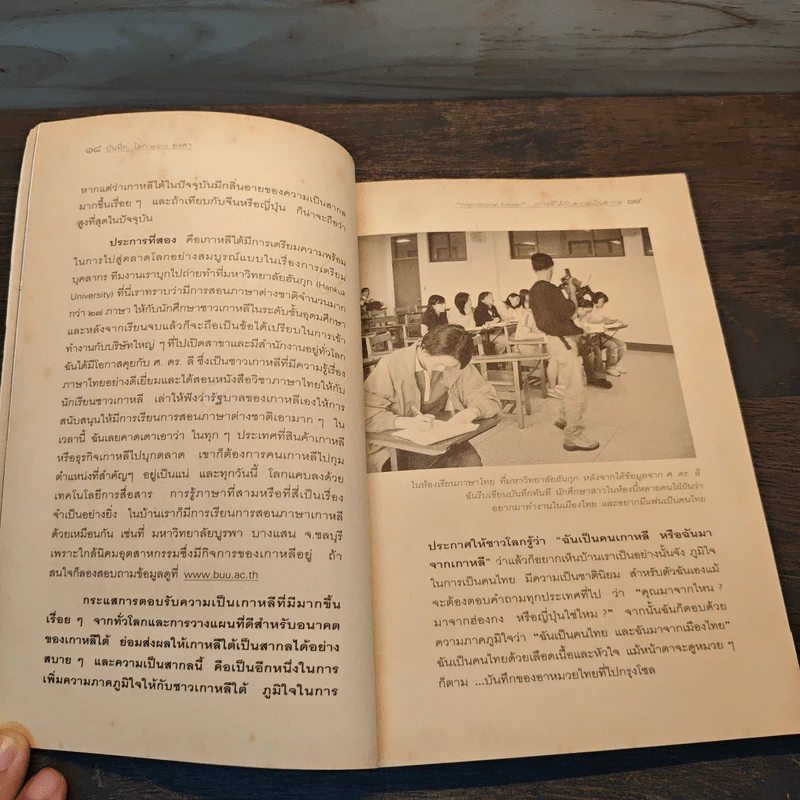 ๑๘ บันทึก...โลก ๓๖๐ องศา
หากแต่ว่าเกาหลีใต้ในปัจจุบันมีกลิ่นอายของความเป็นสากล
มากขึ้นเรื่อย ๆ และถ้าเทียบกับจีนหรือญี่ปุ่น ก็น่าจะถือว่า
สูงที่สุดในปัจจุบัน
ประการที่สอง คือเกาหลีใต้มีการเตรียมความพร้อม
ในการไปสู่ตลาดโลกอย่างสมบูรณ์แบบในเรื่องการเตรียม
บุคลากร ทีมงานเราบุกไปถ่ายทำที่มหาวิทยาลัยฮันกุก (Hankuk
University) ที่นี่เราทราบว่ามีการสอนภาษาต่างชาติจำนวนมาก
กว่า ๒๗ ภาษา ให้กับนักศึกษาชาวเกาหลีในระดับชั้นอุดมศึกษา
และหลังจากเรียนจบแล้วก็จะถือเป็นข้อได้เปรียบในการเข้า
ทำงานกับบริษัทใหญ่ ๆ ที่ไปเปิดสาขาและมีสำนักงานอยู่ทั่วโลก
ฉันได้มีโอกาสคุยกับ ศ. ดร. ลี ซึ่งเป็นชาวเกาหลีที่มีความรู้เรื่อง
ภาษาไทยอย่างดีเยี่ยมและได้สอนหนังสือวิชาภาษาไทยให้กับ
นักเรียนชาวเกาหลี เล่าให้ฟังว่ารัฐบาลของเกาหลีเองให้การ
สนับสนุนให้มีการเรียนการสอนภาษาต่างชาติเอามาก ๆ ใน
เวลานี้ ฉันเลยคาดเดาเอาว่า ในทุก ๆ ประเทศที่สินค้าเกาหลี
หรือธุรกิจเกาหลีไปบุกตลาด เขาก็ต้องการคนเกาหลีไปกุม
ตำแหน่งที่สำคัญๆ อยู่เป็นแน่ และทุกวันนี้ โลกแคบลงด้วย
เทคโนโลยีการสื่อสาร การรู้ภาษาที่สามหรือที่สี่เป็นเรื่อง
จำเป็นอย่างยิ่ง ในบ้านเราก็มีการเรียนการสอนภาษาเกาหลี
ด้วยเหมือนกัน เช่นที่ มหาวิทยาลัยบูรพา บางแสน จ.ชลบุรี
เพราะใกล้นิคมอุตสาหกรรมซึ่งมีกิจการของเกาหลีอยู่ ถ้า
สนใจก็ลองสอบถามข้อมูลดูที่ www.buu.ac.th
กระแสการตอบรับความเป็นเกาหลีที่มีมากขึ้น
เรื่อย ๆ จากทั่วโลกและการวางแผนที่ดีสำหรับอนาคต
ของเกาหลีใต้ ย่อมส่งผลให้เกาหลีใต้เป็นสากลได้อย่าง
สบาย ๆ และความเป็นสากลนี้ คือเป็นอีกหนึ่งในการ
เพิ่มความภาคภูมิใจให้กับชาวเกาหลีใต้ ภูมิใจในการ
"International Korean" ...เกาหลีใต้กับความเป็นสากล ๑๙
ในห้องเรียนภาษาไทย ที่มหาวิทยาลัยฮันกุก หลังจากได้ข้อมูลจาก ศ. ดร. ลี
ฉันรีบเขียนบันทึกทันที นักศึกษาสาวในห้องนี้หลายคนใฝ่ฝันว่า
อยากมาทำงานในเมืองไทย และอยากมีแฟนเป็นคนไทย
ประกาศให้ชาวโลกรู้ว่า "ฉันเป็นคนเกาหลี หรือฉันมา
จากเกาหลี" ว่าแล้วก็อยากเห็นบ้านเราเป็นอย่างนั้นจัง ภูมิใจ
ในการเป็นคนไทย มีความเป็นชาตินิยม สำหรับตัวฉันเองแม้
จะต้องตอบคำถามทุกประเทศที่ไป ว่า "คุณมาจากไหน ?
มาจากฮ่องกง หรือญี่ปุ่นใช่ไหม ?" จากนั้นฉันก็ตอบด้วย
ความภาคภูมิใจว่า "ฉันเป็นคนไทย และฉันมาจากเมืองไทย"
ฉันเป็นคนไทยด้วยเลือดเนื้อและหัวใจ แม้หน้าตาจะดูหมวย ๆ
ก็ตาม ...บันทึกของอาหมวยไทยที่ไปกรุงโซล